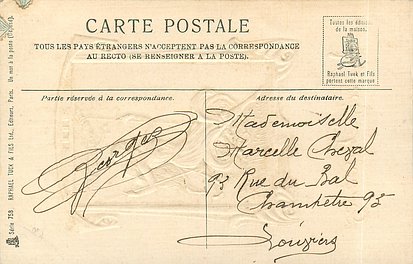 CARTE POSTALE
TOUS LES PAYS ÉTRANGERS N'ACCEPTENT PAS LA CORRESPONDANCE
AU RECTO (SE RENSEIGNER A LA POSTE).
Toutes les éditions
de la maison
Raphael Tuck et Fils
portent cette marque
Partie réservée à la correspondance.
Adresse du destinataire.
Georges
Mademoiselle
Marcelle Cheval
93 Rue du Bal
Champêtre 93
Louviers
Série 759 RAPHAEL TUCK & FILS Ltd. Editeurs, Paris.